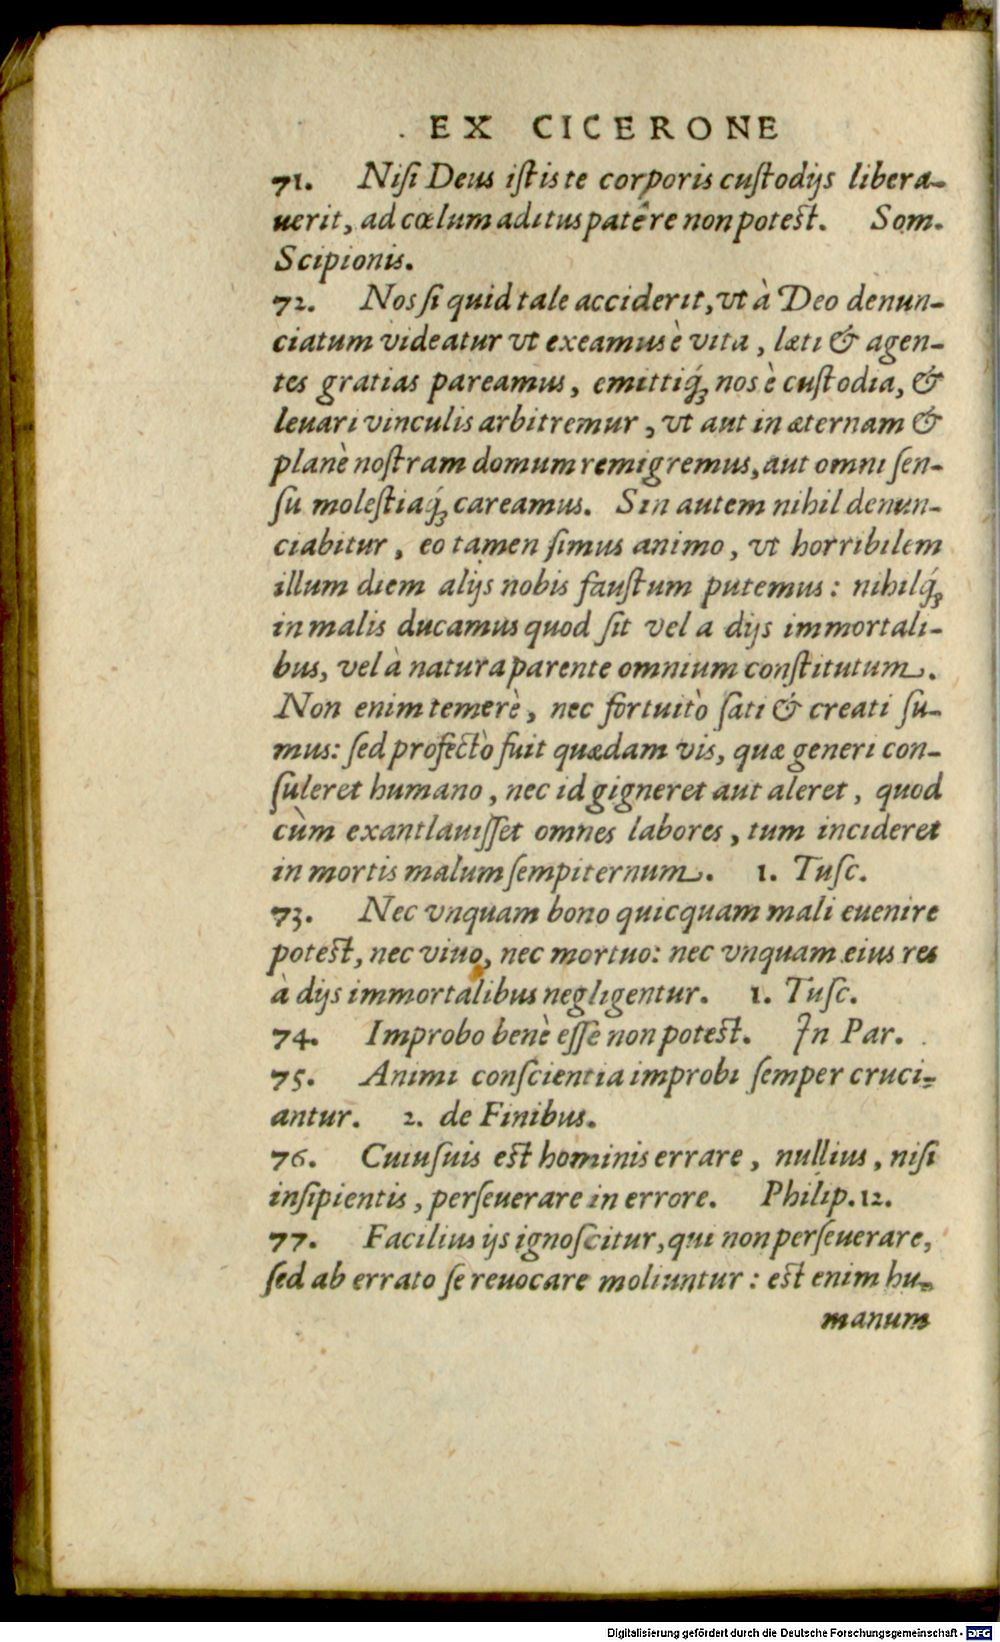 EX CICERONE
71. Niſi Deus iſtis te corporis cuſtodijs libera-
uerit, ad cœlum aditus patêre non poteſt. Som.
Scipionis.
72. Nos ſi quid tale acciderit, vt à Deo denun-
ciatum videatur vt exeamus è vita, læti & agen-
tes gratias pareamus, emittiq́ꝫ nos è cuſtodia, &
leuari vinculis arbitremur, vt aut in æternam &
planè noſtram domum remigremus, aut omni ſen-
ſu moleſtiaq́ꝫ careamus. Sin autem nihil denun-
ciabitur, eo tamen ſimus animo, vt horribilem
illum diem alijs nobis fauſtum putemus: nihilq́ꝫ
in malis ducamus quod ſit vel a dijs immortali-
bus, vel à natura parente omnium conſtitutum.
Non enim temerè, nec fortuitò ſati & creati ſu-
mus: ſed profectò fuit quædam vis, quæ generi con-
ſuleret humano, nec id gigneret aut aleret, quod
cùm exantlauiſſet omnes labores, tum incideret
in mortis malum ſempiternum. 1. Tuſc.
73. Nec vnquam bono quicquam mali euenire
poteſt, nec viuo, nec mortuo: nec vnquam eius res
à dijs immortalibus negligentur. 1. Tuſc.
74. Improbo benè eſſe non poteſt. In Par.
75. Animi conſcientia improbi ſemper cruci-
antur. 2. de Finibus.
76. Cuiuſuis eſt hominis errare, nullius, niſi
inſipientis, perſeuerare in errore. Philip. 12.
77. Facilius ijs ignoſcitur, qui non perſeuerare,
ſed ab errato ſe reuocare moliuntur: eſt enim hu-
manum
Digitalisierung gefördert durch die Deutsche Forschungsgemeinschaft - DFG